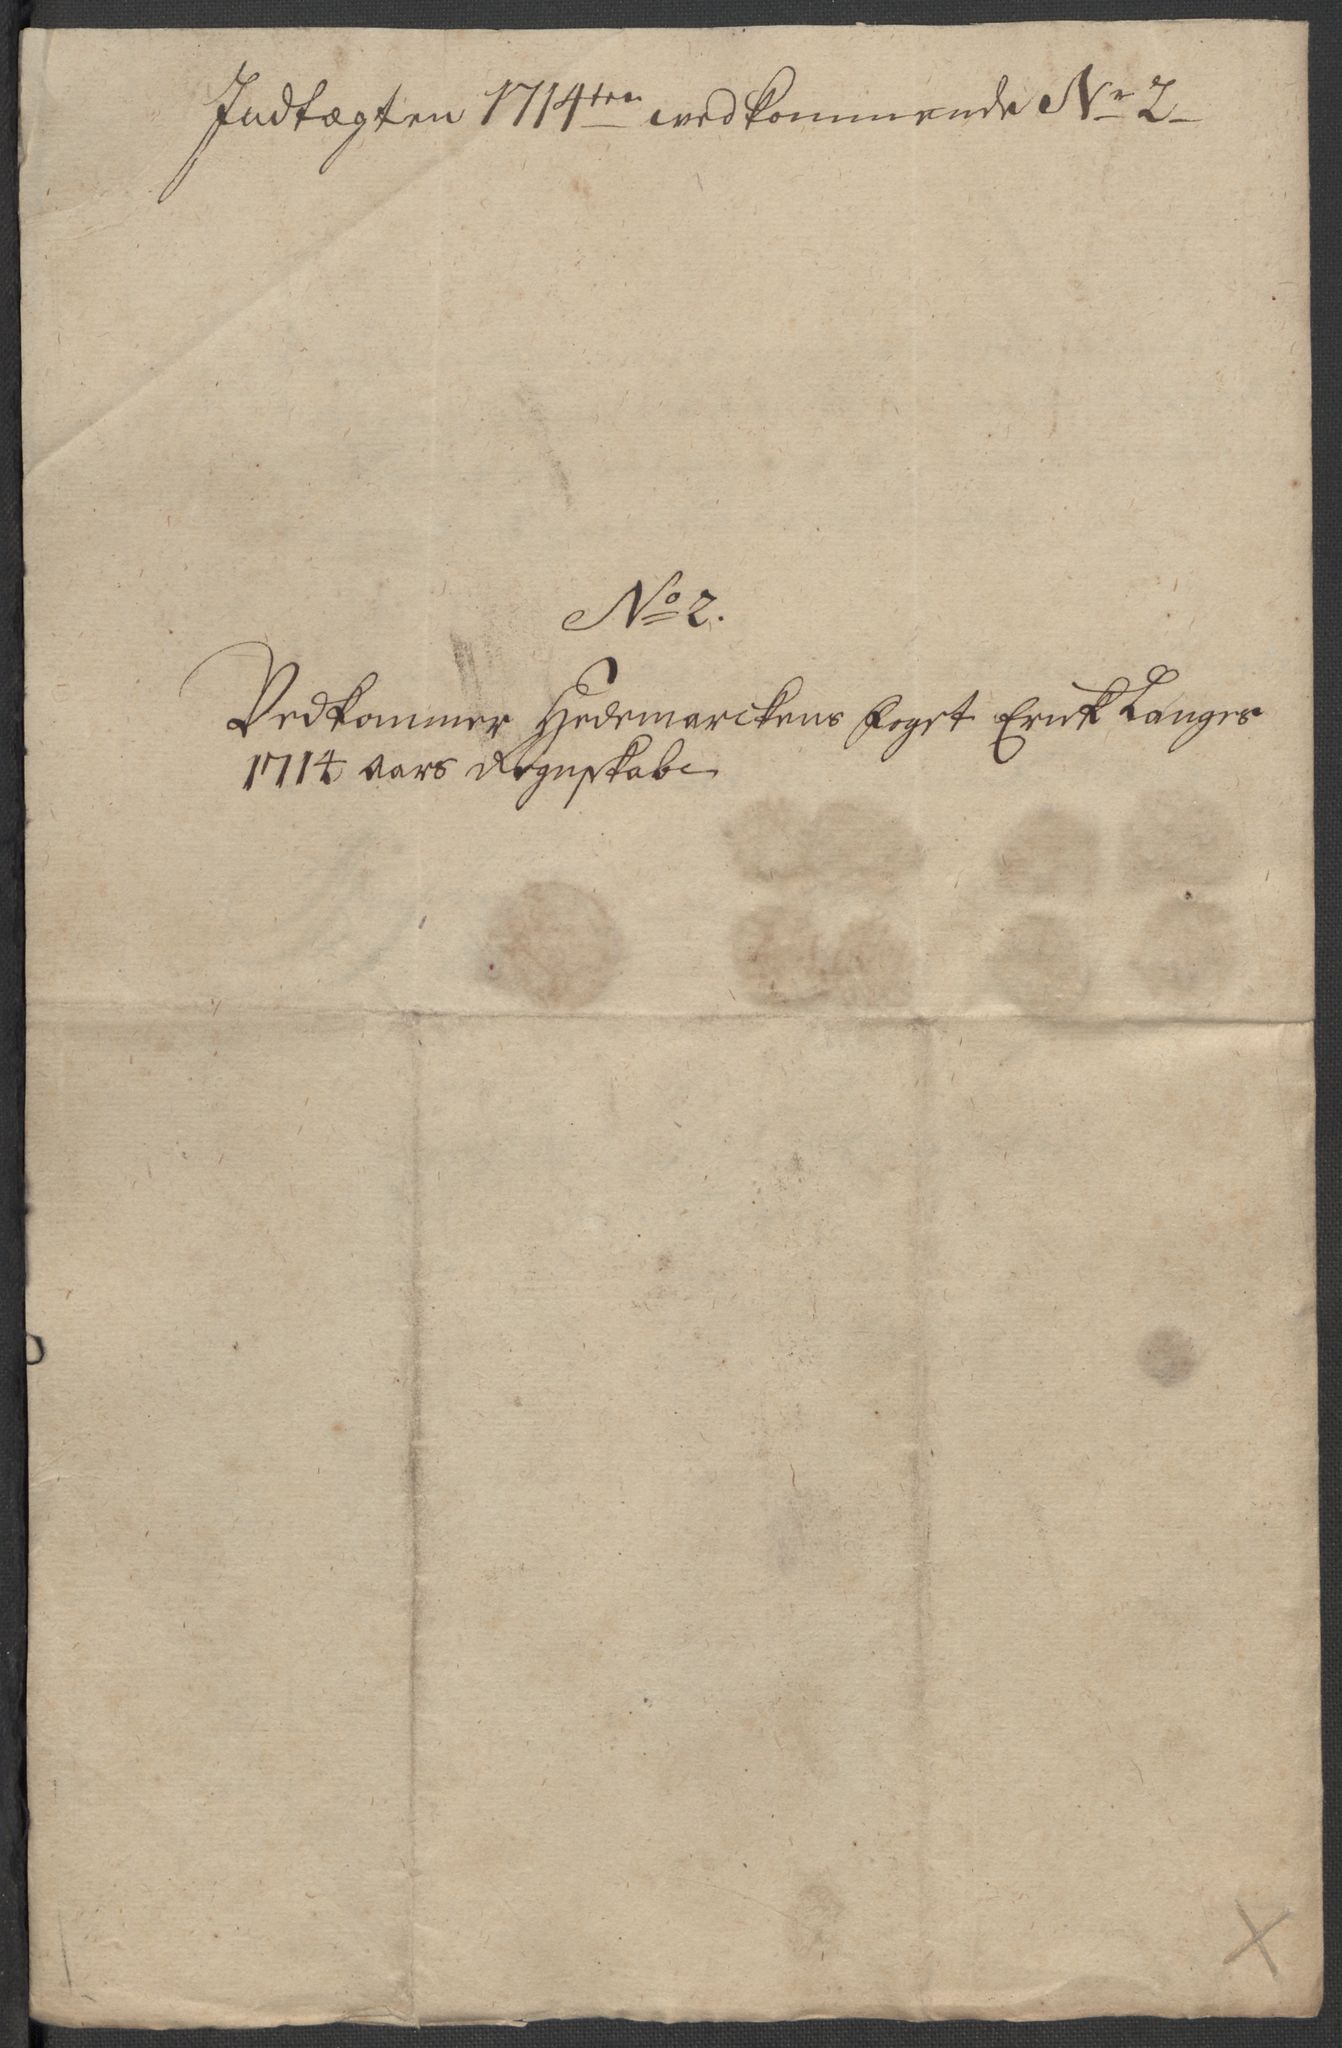 Indtægten 1714ten vedkommende Nr 2
No 2.
Vedkommer Hedemarckens Foget Erick Langes
1714 aars Regnskab